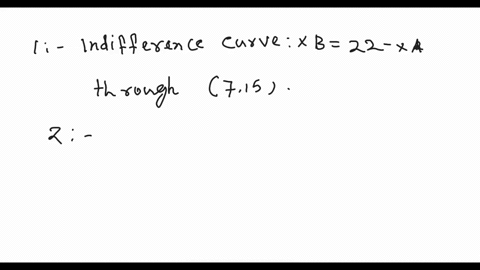 1:- Indifference curve: xB = 22-xA
through (7,15).
2:-